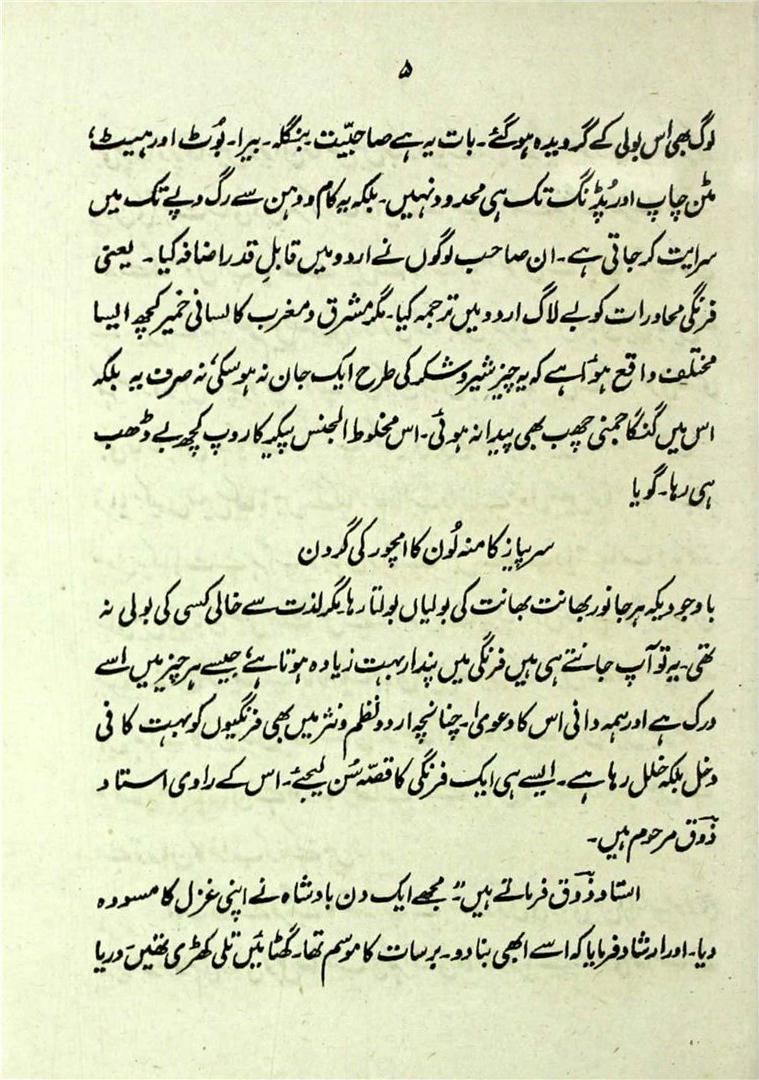 ۵
لوگ بھی اس بولی کے گرویدہ ہو گئے۔ بات یہ ہے صاحبیّت بنگلہ۔ بیرا۔ بُوٹ اور ہیٹ،
مٹن چاپ اور پُڈنگ تک ہی محدود نہیں۔ بلکہ یہ کام و دہن سے رگ و پے تک میں
سرایت کر جاتی ہے۔ ان صاحب لوگوں نے اردو میں قابلِ قدر اضافہ کیا۔ یعنی
فرنگی محاورات کو بے لاگ اردو میں ترجمہ کیا۔ مگر مشرق و مغرب کا لسانی خمیر کچھ ایسا
مختلف واقع ہوا ہے کہ یہ چیز شیر و شکر کی طرح ایک جان نہ ہو سکی، نہ صرف یہ بلکہ
اس میں گنگا جمنی چھب بھی پیدا نہ ہوئی۔ اس مخلوط الجنس پیکر کا روپ کچھ بے ڈھب
ہی رہا۔ گویا
سر پیاز کا منہ لُون کا امچور کی گردن
باوجودیکہ ہر جانور بھانت بھانت کی بولیاں بولتا رہا۔ مگر لذت سے خالی کسی کی بولی نہ
تھی۔ یہ تو آپ جانتے ہی ہیں فرنگی میں پندار بہت زیادہ ہوتا ہے، جیسے ہر چیز میں اسے
درک ہے اور ہمہ دانی اس کا دعویٰ۔ چنانچہ اردو نظم و نثر میں بھی فرنگیوں کو بہت کافی
دخل بلکہ خلل رہا ہے۔ ایسے ہی ایک فرنگی کا قصّہ سُن لیجئے۔ اس کے راوی استاد
ذوق مرحوم ہیں۔
استاد ذوق فرماتے ہیں:" مجھے ایک دن بادشاہ نے اپنی غزل کا مسودہ
دیا۔ اور ارشاد فرمایا کہ اسے ابھی بنا دو۔ برسات کا موسم تھا۔ گھٹائیں تلی کھڑی تھیں۔ دریا